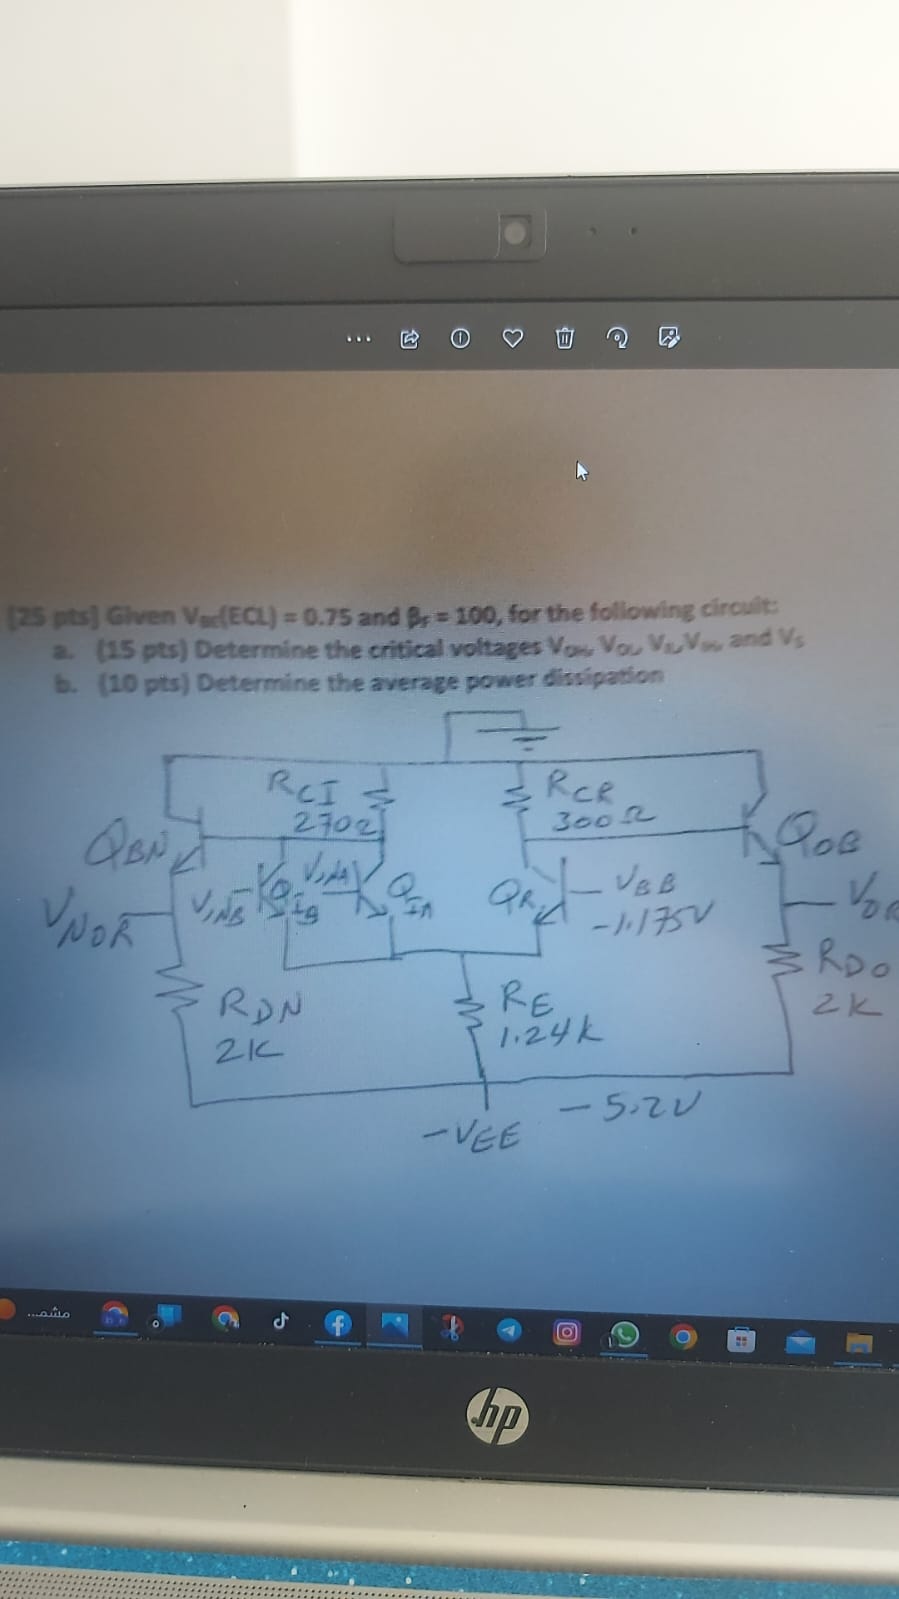 [25 pts] Given VBE(ECL) = 0.75 and βF = 100, for the following circuit:
a. (15 pts) Determine the critical voltages VOH, VOL, VIL, VIH, and VS
b. (10 pts) Determine the average power dissipation
RCI
270Ω
RCR
300Ω
QBN
QOB
VINA
VINB
QIB
QIA
QR
VBB
-1.175V
VNOR
RDN
2K
RE
1.24k
RDO
2K
-VEE
-5.2V
hp